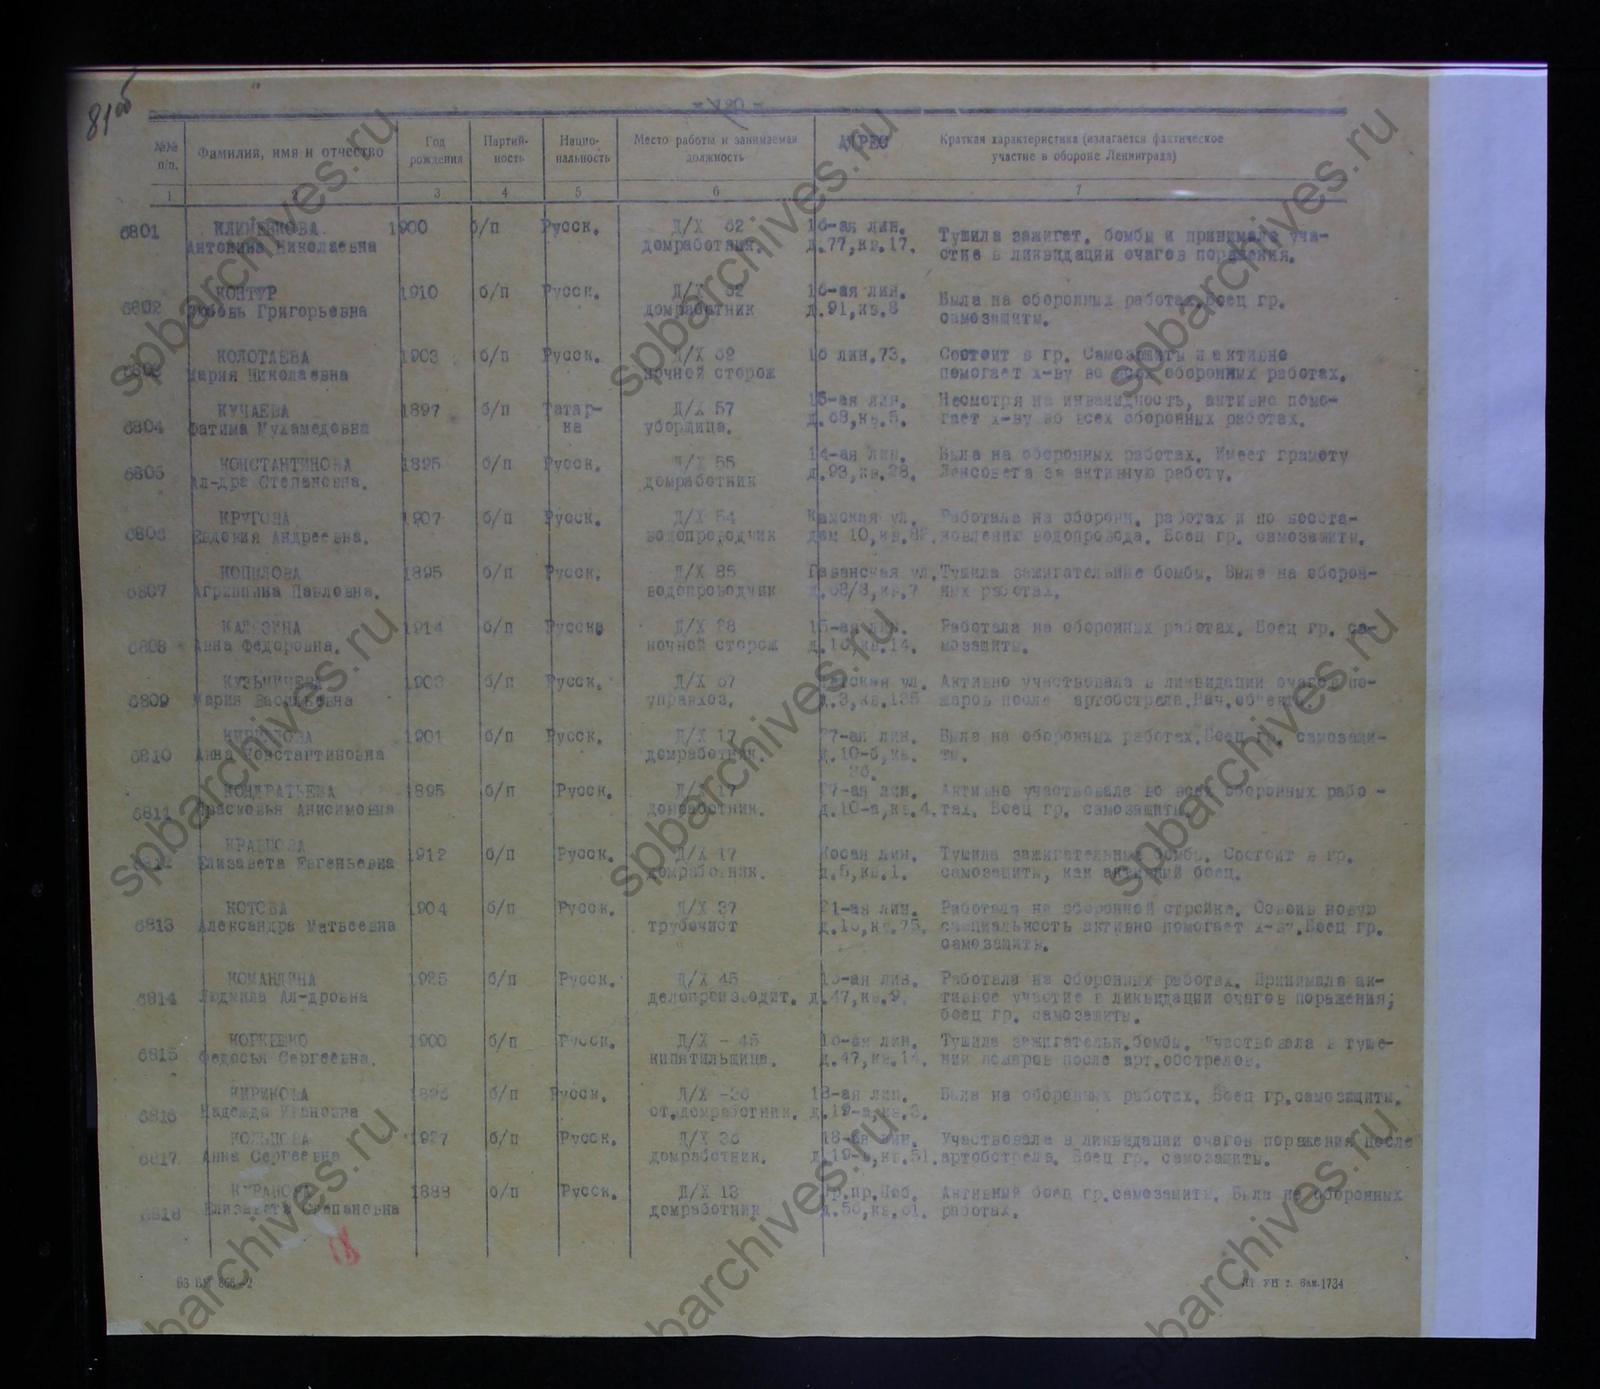 81об
№№ п/п. Фамилия, имя и отчество Год рождения Партийность Национальность Место работы и занимаемая должность АДРЕС Краткая характеристика (излагается фактическое участие в обороне Ленинграда)
1 2 3 4 5 6 7
6801 1900 б/п Русск. Д/Х 62 16-ая лин. Тушила зажигат. бомбы и принимала уча-
Антонина Николаевна домработник д.77,кв.17. стие в ликвидации очагов поражения.
6802 КОНТУР 1910 б/п Русск. Д/Х 62 16-ая лин. Была на оборонных работах.Боец гр.
Любовь Григорьевна домработник д.91,кв.8 самозащиты.
КОЛОТАЕВА 1903 б/п Русск. Д/Х 62 16 лин.73. Состоит в гр. Самозащиты и активно
6803 Мария Николаевна ночной сторож помогает х-ву во всех оборонных работах.
КУЧАЕВА 1897 б/п Татар- Д/Х 57 Несмотря на инвалидность, активно помо-
6804 Фатима Мухамедовна ка уборщица. д.68,кв.5. гает х-ву во всех оборонных работах.
КОНСТАНТИНОВА 1895 б/п Русск. Д/Х 55 14-ая лин. Была на оборонных работах. Имеет грамоту
6805 Ал-дра Степановна. домработник д.93,кв.28. Ленсовета за активную работу.
КРУГОВА 1907 б/п Русск. Д/Х 54 Камская ул. Работала на оборонн. работах и по восста-
6806 Евдокия Андреевна. водопроводчик дом 10,кв.82. новлению водопровода. Боец гр. самозащиты.
КОПЫЛОВА 1895 б/п Русск. Д/Х 85 Гаванская ул. Тушила зажигательные бомбы. Была на оборон-
6807 Агриппина Павловна. водопроводчик ных работах.
КАЛЯЗИНА 1914 б/п Русск. Д/Х 28 15-ая лин. Работала на оборонных работах. Боец гр. са-
6808 Анна Федоровна. ночной сторож мозащиты.
КУЗЬМИЧЕВА 1903 б/п Русск. Д/Х 67 Активно участвовала в ликвидации очагов по-
6809 Мария Васильевна управхоз. д.3,кв.135 жаров после артобстрела.
1901 б/п Русск. Д/Х 17 27-ая лин. Была на оборонных работах.Боец гр. самозащи-
6810 Анна Константиновна домработник. д.10-б,кв. ты.
36.
КОНДРАТЬЕВА 1895 б/п Русск. Д/Х 17 27-ая лин. Активно участвовала во всех оборонных рабо -
6811 Прасковья Анисимовна домработник. д.10-а,кв.4. тах. Боец гр. самозащиты.
КРАВЦОВА
6812 Елизавета Евгеньевна 1912 б/п Русск. Д/Х 17 Косая лин. Тушила зажигательные бомбы. Состоит в гр.
домработник. д.5,кв.1. самозащиты, как активный боец.
КОТОВА 1904 б/п Русск. Д/Х 37 21-ая лин. Работала на оборонной стройке. Освоив новую
6813 Александра Матвеевна трубочист д.16,кв.75. специальность активно помогает х-ву.Боец гр.
самозащиты.
КОМАНДИНА 1925 б/п Русск. Д/Х 45 Работала на оборонных работах. Принимала ак-
6814 Людмила Ал-дровна делопроизводит. д.47,кв.9. тивное участие в ликвидации очагов поражения;
боец гр. самозащиты.
КОРКЕШКО 1900 б/п Русск. Д/Х - 45 Тушила зажигательн.бомбы. Участвовала в туше-
6815 Федосья Сергеевна. кипятильщица. д.47,кв.14. нии пожаров после арт.обстрелов.
КИРИКОВА б/п Русск. Д/Х -36 18-ая лин. Была на оборонных работах. Боец гр.самозащиты.
6816 Надежда Ивановна ст.домработник. д.19-а,кв.3.
КОЛЬЦОВА 1927 б/п Русск. Д/Х 36 18-ая лин. Участвовала в ликвидации очагов поражения после
6817 Анна Сергеевна домработник. артобстрела. Боец гр. самозащиты.
1888 б/п Русск. Д/Х 13 Активный боец гр.самозащиты. Была на оборонных
6818 Елизавета Степановна домработник д.56,кв.61. работах.
18
spbarchives.ru